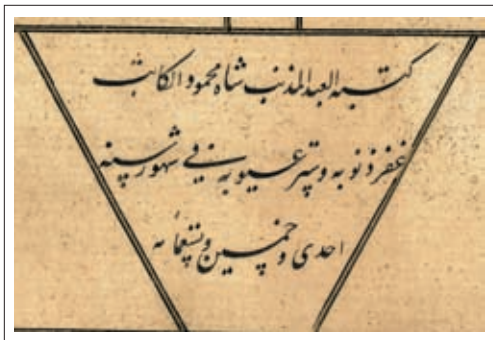 کتبه العبد المذنب شاه محمود الکاتب
غفر ذنوبه و ستر عیوبه فی شهور سنه
احدی و خمسین و تسعمائه